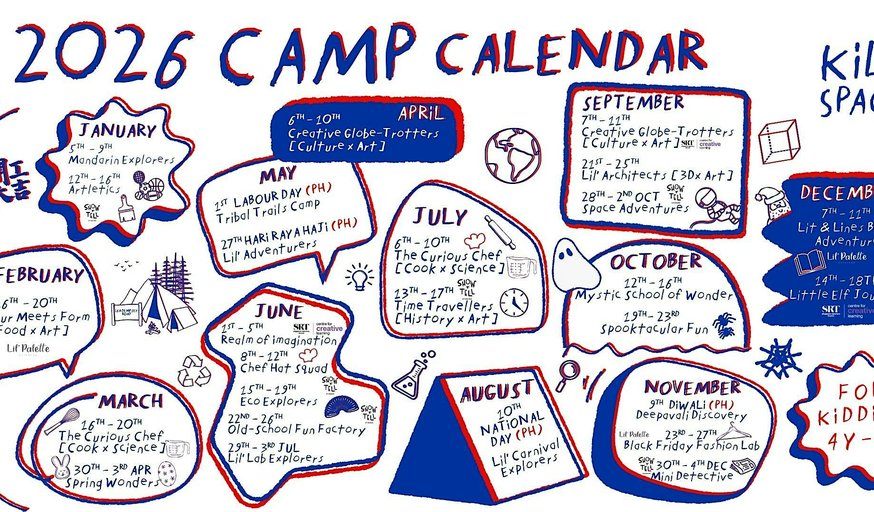 2026 CAMP CALENDAR
JANUARY
5TH - 9TH
Mandarin Explorers
12TH - 16TH
Artletics
SHOW TELL
APRIL
6TH - 10TH
Creative Globe-Trotters
[Culture x Art]
MAY
1ST LABOUR DAY (PH)
Tribal Trails Camp
27TH HARI RAYA HAJI (PH)
Lil' Adventurers
JULY
6TH - 10TH
The Curious Chef
[Cook x Science]
13TH - 17TH SHOW TELL
Time Travellers
[History x Art]
SEPTEMBER
7TH - 11TH
Creative Globe-Trotters
[Culture x Art] SRT centre for creative learning
21ST - 25TH
Lil' Architects [3Dx Art]
28TH - 2ND OCT SHOW TELL
Space Adventures
OCTOBER
12TH - 16TH
Mystic School of Wonder
19TH - 23RD
Spooktacular Fun
7TH - 11TH
Lit & Lines
Lil' Palette
14TH - 18TH
Little Elf
SRT centre for creative learning
FEBRUARY
- 20TH
Meets Form
x Art]
Lil' Palette
MARCH
16TH - 20TH
The Curious Chef
[Cook x Science]
30TH - 3RD APR
Spring Wonders
JUNE
1ST - 5TH SRT centre for creative learning
Realm of imagination
8TH - 12TH
Chef Hat Squad
15TH - 19TH SHOW TELL
Eco Explorers
22ND - 26TH SHOW TELL
Old-School Fun Factory
29TH - 3RD JUL
Lil' Lab Explorers
AUGUST
10TH
NATIONAL
DAY (PH)
Lil' Carnival
Explorers
NOVEMBER
9TH DIWALI (PH)
Deepavali Discovery
Lil' Palette 23RD - 27TH
Black Friday Fashion Lab
SHOW TELL 30TH - 4TH DEC
Mini Detective
4Y -